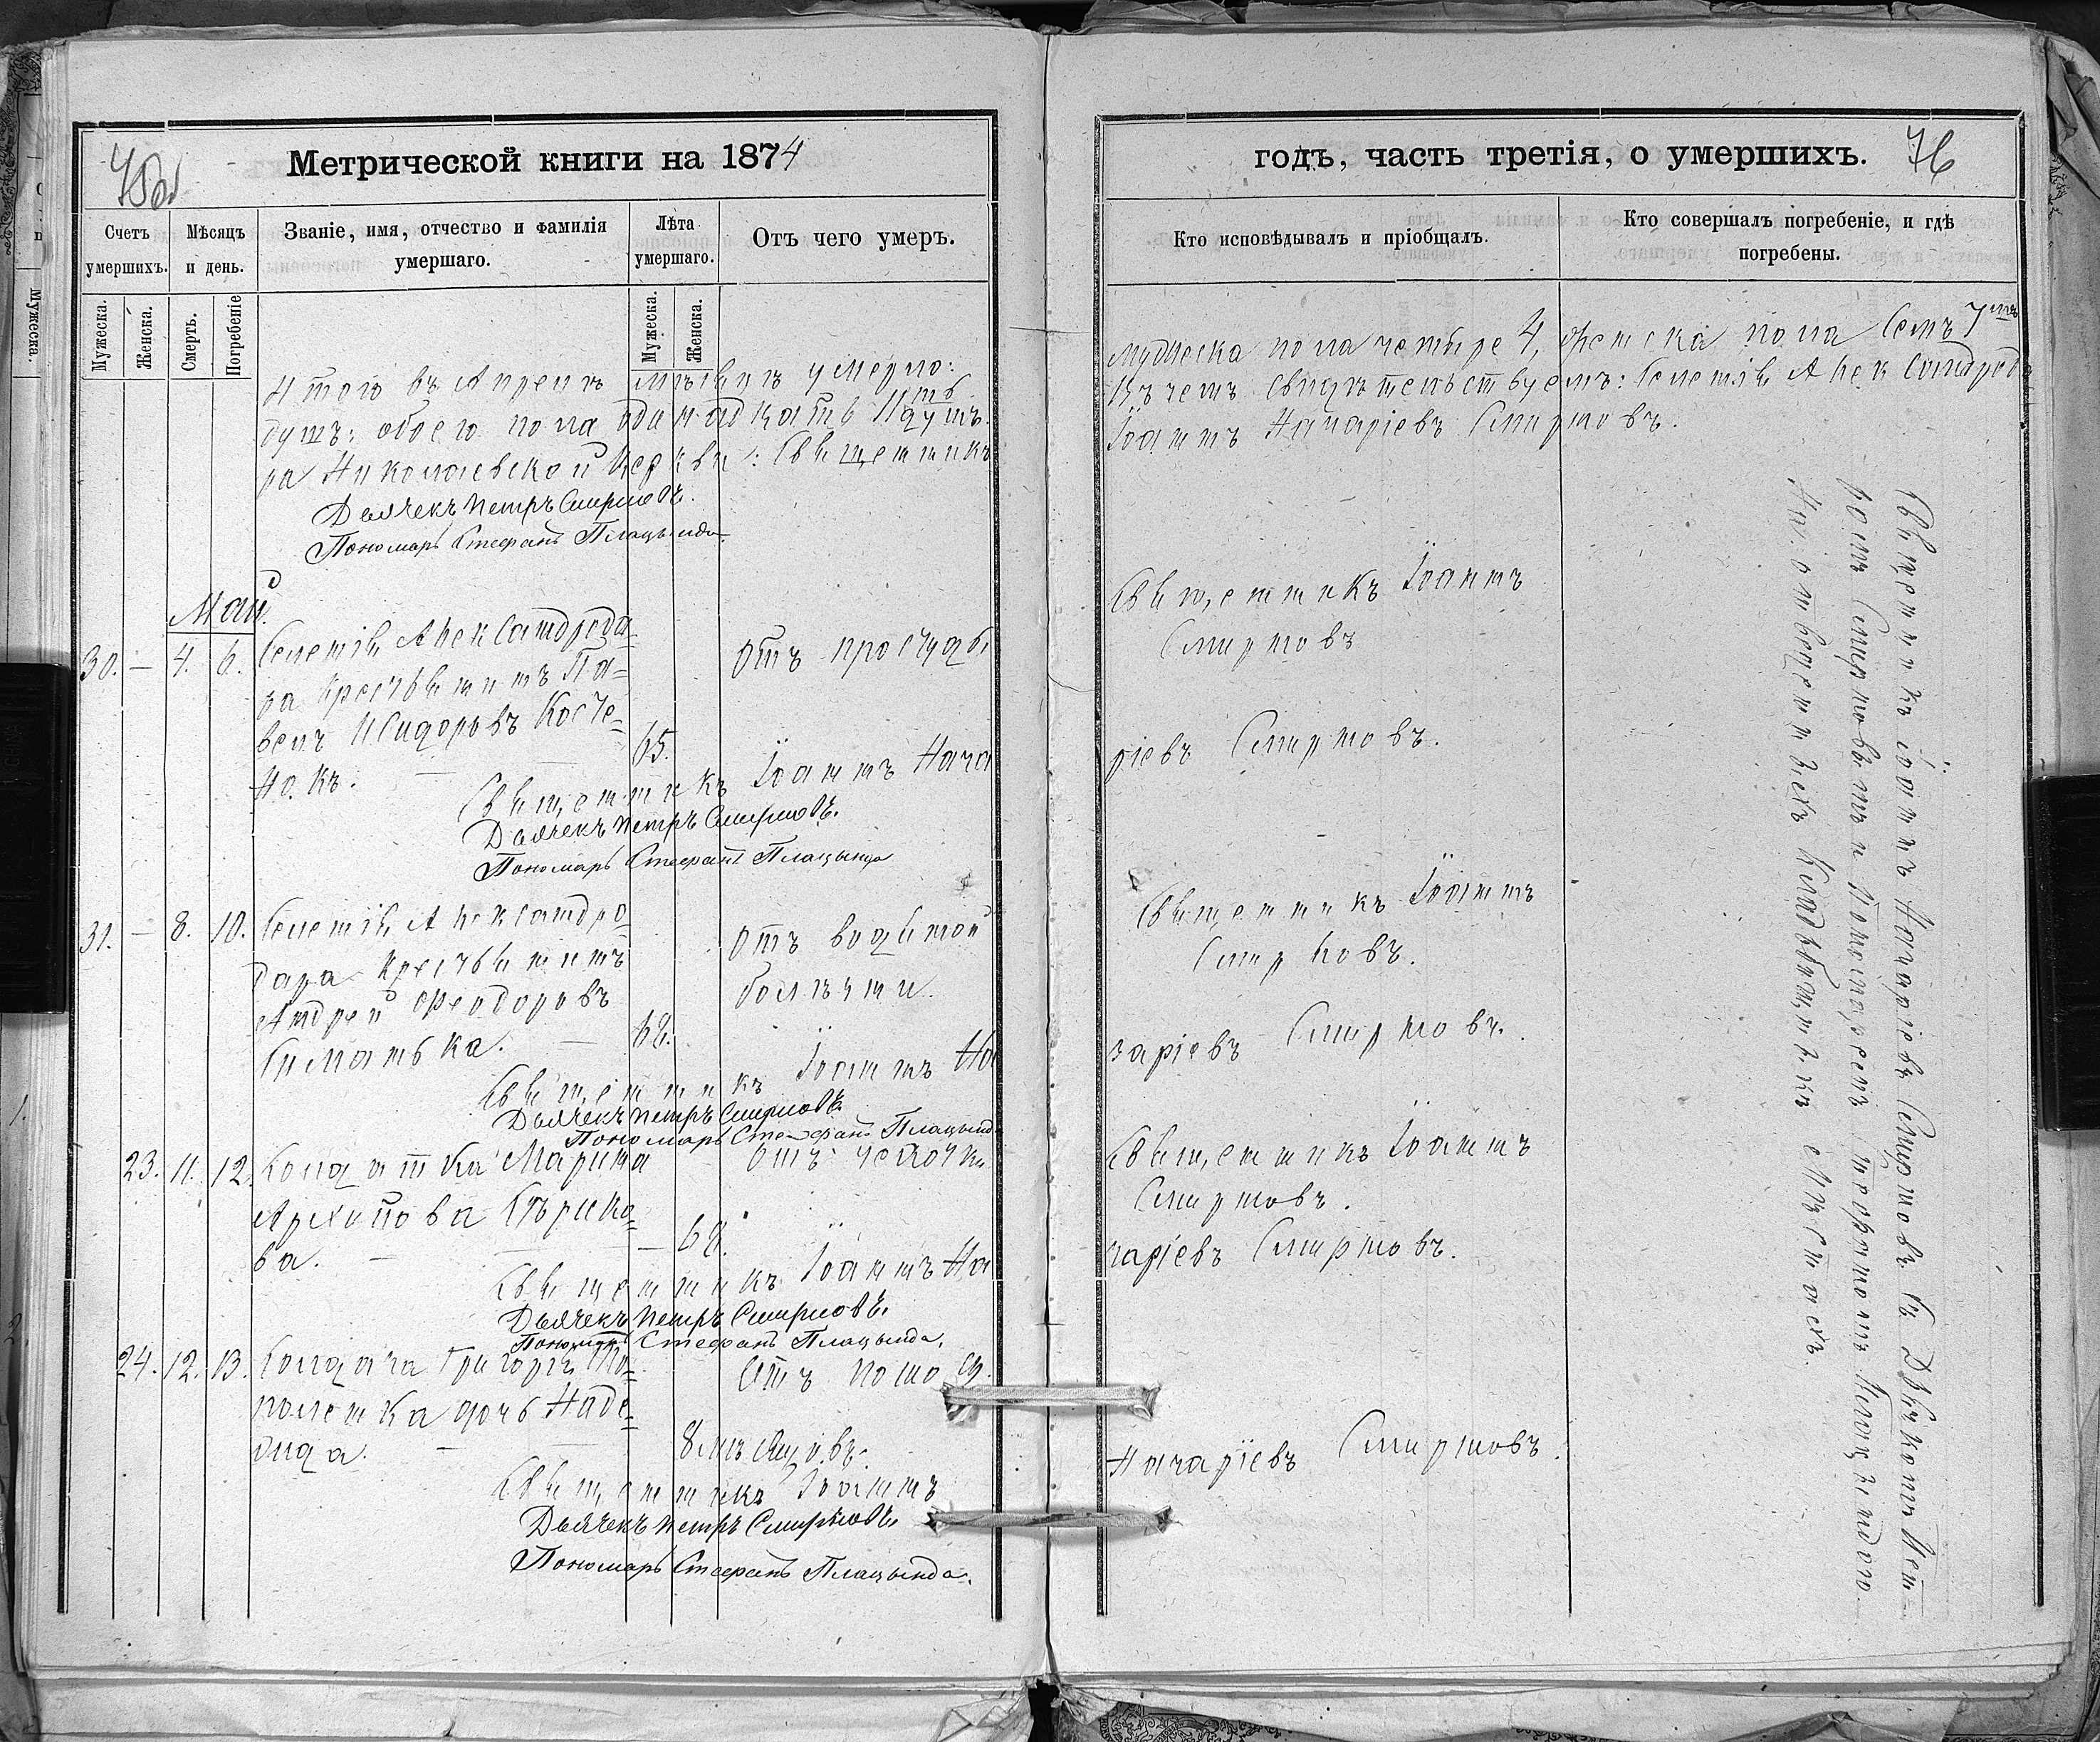 Метрической книги на 1874
Счетъ умершихъ.
Мѣсяцъ и день.
Званіе, имя, отчество и фамилія умершаго.
Лѣта умершаго.
Отъ чего умеръ.
Мужеска.
Женска.
Смерть.
Погребеніе
Мужеска.
Женска.
Итого въ Апрелѣ мѣсяцѣ умерло:
душъ: обоего пола одинадцать 11ть душъ.
ра Николаевской Церкви: Священникъ
Дьячекъ Петръ Смирновъ.
Пономарь Стефанъ Плацында
Май.
30. — 4. 6. Селенія Александрода=
ра крестьянинъ Па=
велъ Исидоровъ
65.
Отъ простуды
Священникъ Іоаннъ Наза
Дьячекъ Петръ Смирновъ.
Пономарь Стефанъ Плацында
31. — 8. 10. Селенія Александро
дара крестьянинъ
Андрей Феодоровъ
68.
Отъ водяной
болѣзни.
Священникъ Іоаннъ На
Дьячекъ Петръ Смирновъ
Пономарь Стефанъ Плацында
23. 11. 12. Солдатка Марина
Архипова
ва. — 68.
Отъ чахотки
Священникъ Іоаннъ На
Дьячекъ Петръ Смирновъ.
Пономарь Стефанъ Плацында.
24. 12. 13. Солдата Григорія
дочь Наде=
жда.
8 мѣсяцовъ.
Отъ поноса.
Священникъ Іоаннъ
Дьячекъ Петръ Смирновъ.
Пономарь Стефанъ Плацында.
годъ, часть третія, о умершихъ. 76
Кто исповѣдывалъ и пріобщалъ.
Кто совершалъ погребеніе, и гдѣ погребены.
мужеска пола четыре 4, женска пола семь 7мь
въ чемъ свидѣтельствуемъ: Селенія Александрода
Іоаннъ Назаріевъ Смирновъ.
Священникъ Іоаннъ
Смирновъ
ріевъ Смирновъ.
Священникъ Іоаннъ
Смирновъ.
заріевъ Смирновъ.
Священникъ Іоаннъ
Смирновъ.
заріевъ Смирновъ.
Назаріевъ Смирновъ.
Священникъ Іоаннъ Назаріевъ Смирновъ съ Дьячкомъ Пет=
ромъ Смирновымъ и Пономаремъ Плацындою.
На освященныхъ кладбищныхъ мѣстахъ.